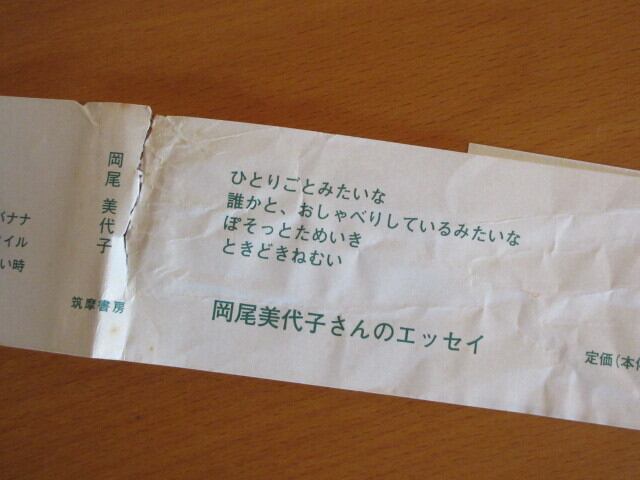 ひとりごとみたいな
誰かと、おしゃべりしているみたいな
ぽそっとためいき
ときどきねむい
岡尾美代子さんのエッセイ
定価(本体
岡尾 美代子
筑摩書房
バナナ
イル
い時